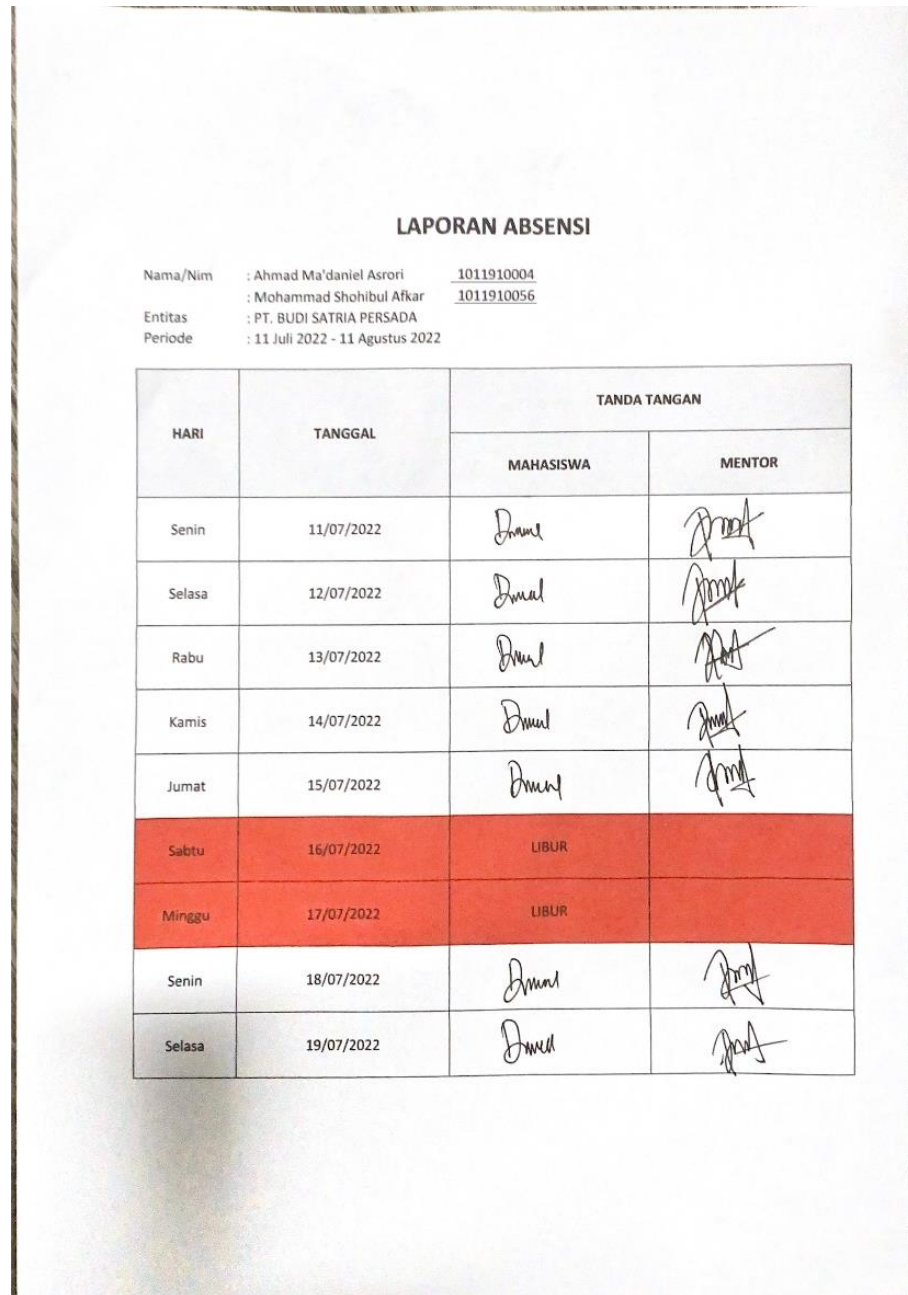 LAPORAN ABSENSI
Nama/Nim : Ahmad Ma'daniel Asrori 1011910004
: Mohammad Shohibul Afkar 1011910056
Entitas : PT. BUDI SATRIA PERSADA
Periode : 11 Juli 2022 - 11 Agustus 2022
HARI TANGGAL TANDA TANGAN
MAHASISWA MENTOR
Senin 11/07/2022
Selasa 12/07/2022
Rabu 13/07/2022
Kamis 14/07/2022
Jumat 15/07/2022
Sabtu 16/07/2022 LIBUR
Minggu 17/07/2022 LIBUR
Senin 18/07/2022
Selasa 19/07/2022